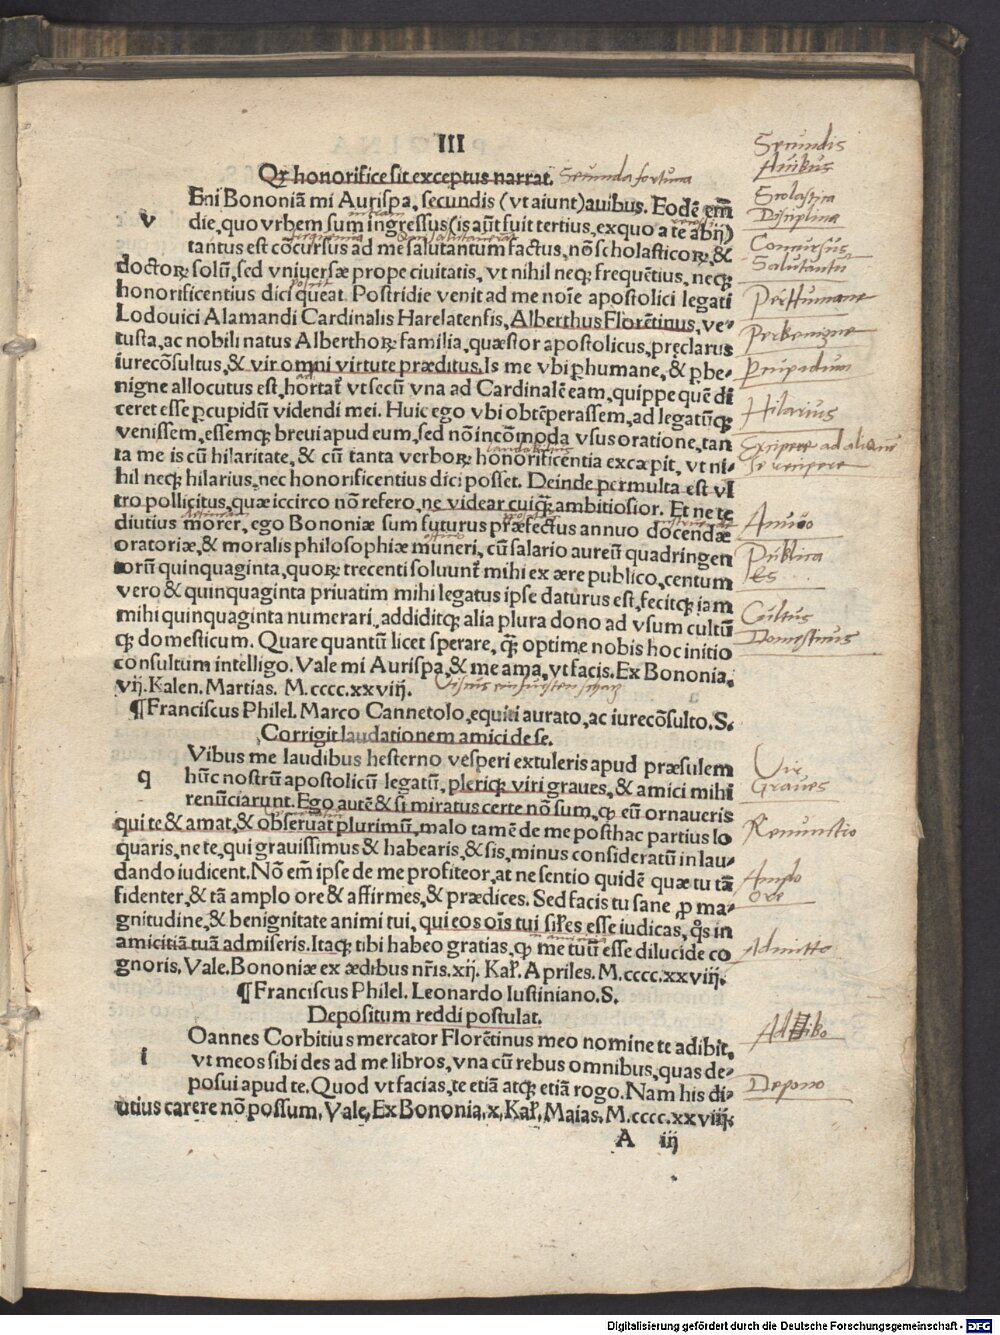 III
Qꝙ honorifice sit exceptus narrat. Secunda fortuna
v Eni Bononiā mi Aurispa, secundis (vt aiunt) auibus. Eodē em̄
die, quo vrbem sum ingressus (is aūt fuit tertius, exquo a te abij)
tantus est cōcursus ad me salutantum factus, nō scholasticoꝝ, &
doctoꝝ solū, sed vniuersæ prope ciuitatis, vt nihil neqꝫ frequētius, neqꝫ
honorificentius dici queat. Postridie venit ad me noīe apostolici legati
Lodouici Alamandi Cardinalis Harelatensis, Alberthus Florētinus, ve⸗
tusta, ac nobili natus Alberthoꝝ familia, quæstor apostolicus, pręclarus
iurecōsultus, & vir omni virtute præditus. Is me vbi ꝑhumane, & ꝑbe⸗
nigne allocutus est, hortat̄ vt secū vna ad Cardinalē eam, quippe quē di
ceret esse ꝑcupidū videndi mei. Huic ego vbi obtēperassem, ad legatūqꝫ
venissem, essemqꝫ breui apud eum, sed nō incōmoda vsus oratione, tan
ta me is cū hilaritate, & cū tanta verboꝝ honorificentia excæpit, vt ni⸗
hil neqꝫ hilarius, nec honorificentius dici posset. Deinde permulta est vl
tro pollicitus, quæ iccirco nō refero, ne videar cuiqꝫ̄ ambitiosior. Et ne te
diutius morer, ego Bononiæ sum futurus præfectus annuo docendæ
oratoriæ, & moralis philosophiæ muneri, cū salario aureū quadringen
torū quinquaginta, quoꝝ trecenti soluunt̄ mihi ex ære publico, centum
vero & quinquaginta priuatim mihi legatus ipse daturus est, fecitqꝫ iam
mihi quinquaginta numerari, addiditqꝫ alia plura dono ad vsum cultū
qꝫ domesticum. Quare quantū licet sperare, qꝫ̄ optime nobis hoc initio
consultum intelligo. Vale mi Aurispa, & me ama, vt facis. Ex Bononia.
vij. Kalen. Martias. M.cccc.xxviij.
¶ Franciscus Philel. Marco Cannetolo, equiti aurato, ac iurecōsulto. S.
Corrigit laudationem amici de se.
q Vibus me laudibus hesterno vesperi extuleris apud præsulem
hūc nostrū apostolicū legatū, pleriqꝫ viri graues, & amici mihi
renūciarunt. Ego autē & si miratus certe nō sum, ꝙ eū ornaueris
qui te & amat, & obseruat plurimū, malo tamē de me posthac partius lo
quaris, ne te, qui grauissimus & habearis, & sis, minus consideratū in lau⸗
dando iudicent. Nō em̄ ipse de me profiteor, at ne sentio quidē quæ tu tā
fidenter, & tā amplo ore & affirmes, & prædices. Sed facis tu sane ꝓ ma⸗
gnitudine, & benignitate animi tui, qui eos oīs tui sil̄es esse iudicas, qͦs in
amicitiā tuā admiseris. Itaqꝫ tibi habeo gratias, ꝙ me tuū esse dilucide co
gnoris. Vale. Bononiæ ex ædibus nr̄is. xij. Kal̄. Apriles. M.cccc.xxviij.
¶ Franciscus Philel. Leonardo Iustiniano. S.
Depositum reddi postulat.
i Oannes Corbitius mercator Florētinus meo nomine te adibit,
vt meos sibi des ad me libros, vna cū rebus omnibus, quas de⸗
posui apud te. Quod vt facias, te etiā atqꝫ etiā rogo. Nam his di⸗
utius carere nō possum. Vale, Ex Bononia. x. Kal̄. Maias. M.cccc.xxviij.
A iij
Secundis
Auibus
Scolastica
Disciplina
Concursus
Salutantū
Perhumane
Perbenigne
Percupidum
Hilarius
Excipere ad
Annuo
Publica
Cultus
Domesticus
Vir
Graues
Renunctio
Amplo
ore
Admitto
Depono
Digitalisierung gefördert durch die Deutsche Forschungsgemeinschaft - DFG